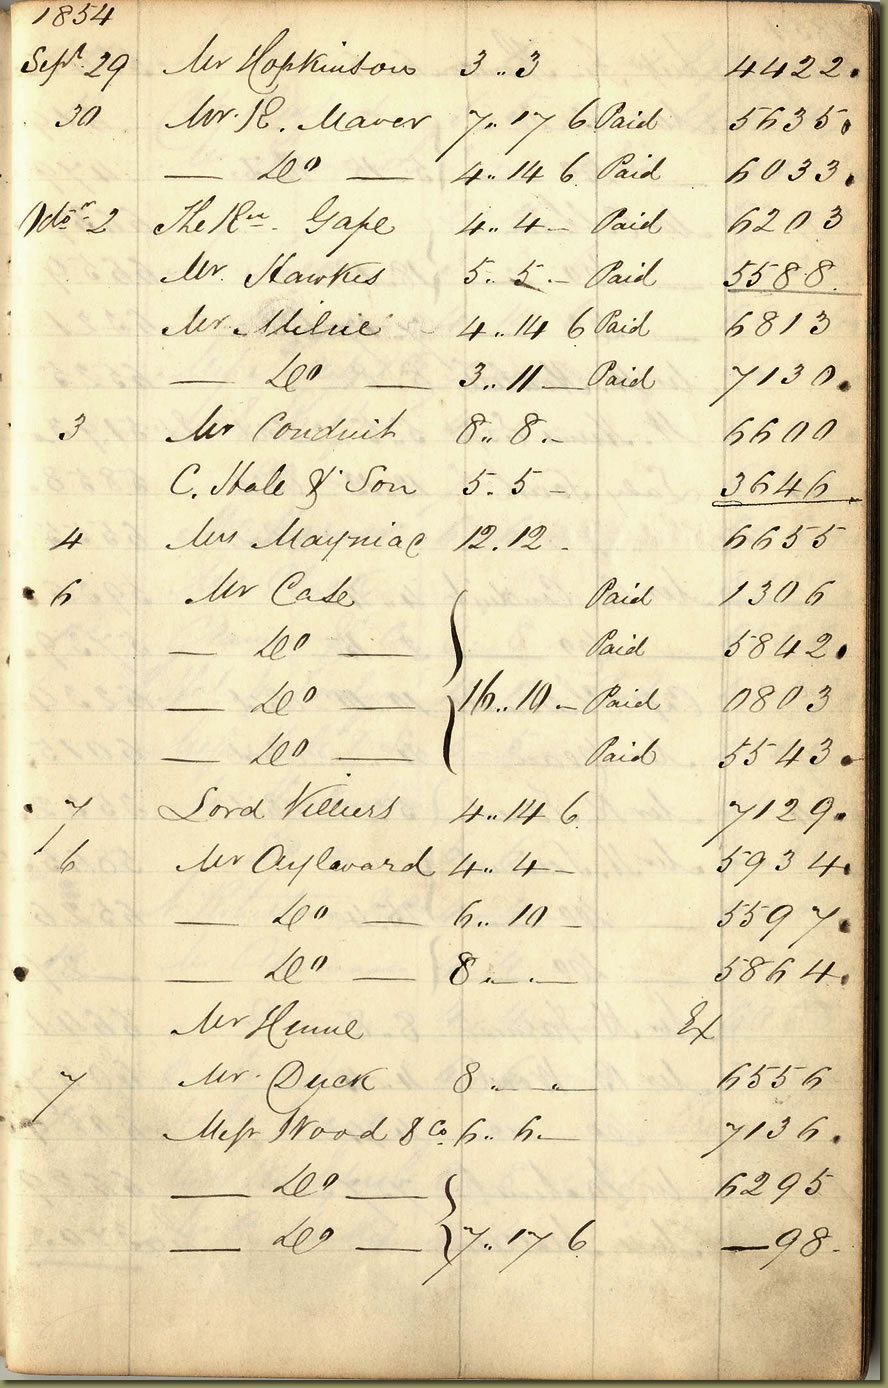 1854
Sept. 29 Mr Hopkinson 3 .. 3 4422.
30 Mr. R. Maver 7 .. 17 6 Paid 5635.
— Do — 4 .. 14 6 Paid 6033.
2 The Rev. Gape 4 .. 4 — Paid 6203
Mr. Hawkes 5 .. 5 — Paid 5588.
Mr. Milne 4 .. 14 6 Paid 6813
— Do — 3 .. 11 — Paid 7130.
3 Mr Conduit 8 .. 8 .- 6600
C. Hale & Son 5 . 5 - 3646
4 Mrs 12 . 12 - 6655
6 Mr Case Paid 1306
— Do — Paid 5842.
— Do — 16 .. 10 — Paid 0803
— Do — Paid 5543.
7 Lord Villiers 4 .. 14 6 7129.
6 Mr Aylward 4 .. 4 - 5934.
— Do — 6 .. 10 - 5597.
— Do — 8 .. - .. - 5864.
Mr Ex
7 Mr. Duck 8 .. - .. — 6556
Messr Wood & Co. 6 .. 6 .— 7136.
— Do — 6295
— Do — 7 .. 17 6 — 98.